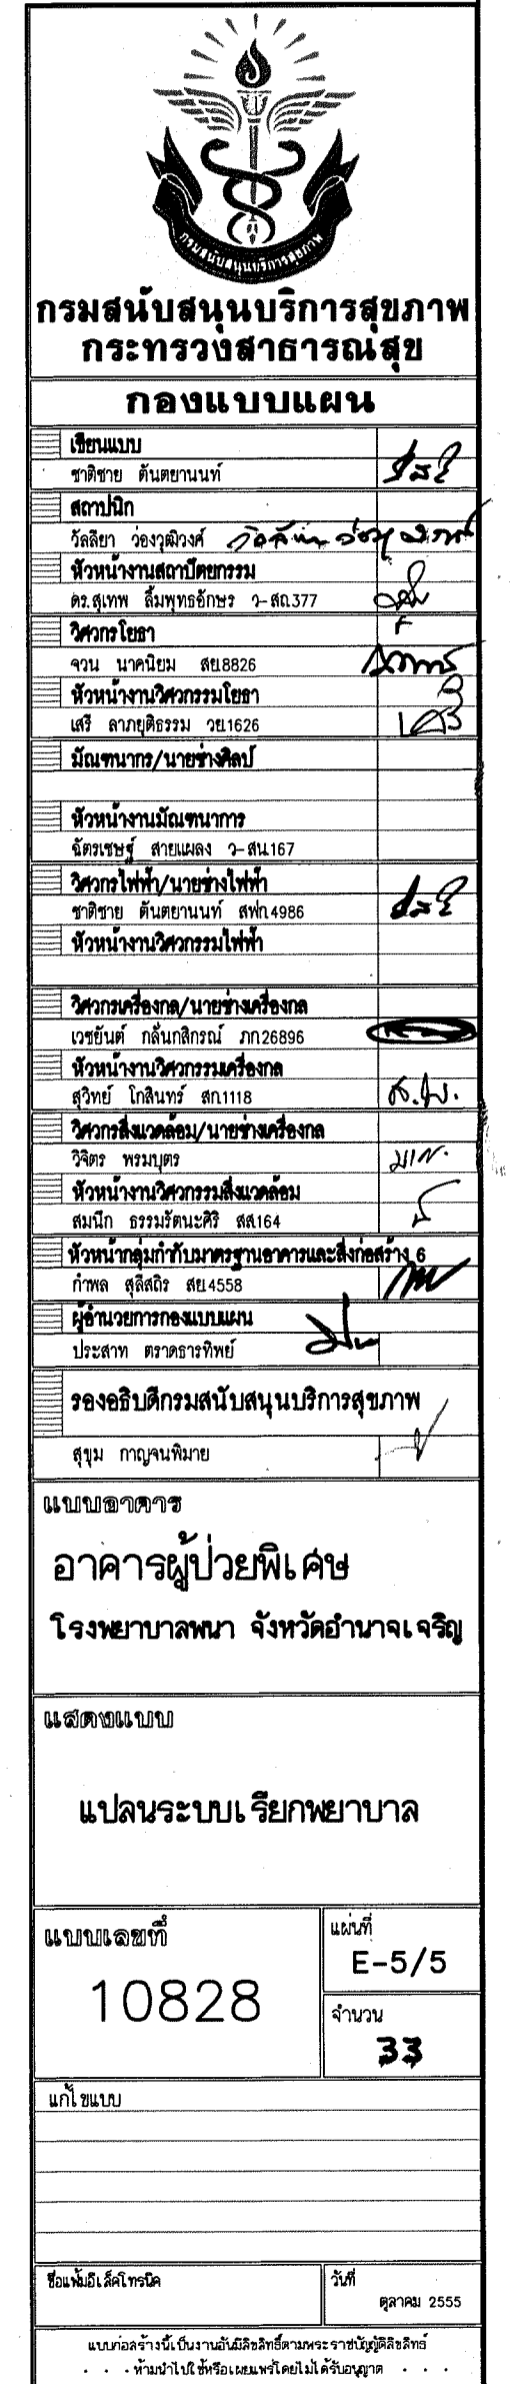 กรมสนับสนุนบริการสุขภาพ
กรมสนับสนุนบริการสุขภาพ
กระทรวงสาธารณสุข
กองแบบแผน
เขียนแบบ
ชาติชาย ตันตยานนท์
สถาปนิก
วัลลียา ว่องวุฒิวงศ์
หัวหน้างานสถาปัตยกรรม
ดร.สุเทพ ลิ้มพุทธอักษร ว-สถ.377
วิศวกรโยธา
จวน นาคนิยม สย.8826
หัวหน้างานวิศวกรรมโยธา
เสรี ลาภยุติธรรม วย.1626
มัณฑนากร/นายช่างศิลป์
หัวหน้างานมัณฑนาการ
ฉัตรเชษฐ์ สายแผลง ว-สน.167
วิศวกรไฟฟ้า/นายช่างไฟฟ้า
ชาติชาย ตันตยานนท์ สฟก.4986
หัวหน้างานวิศวกรรมไฟฟ้า
วิศวกรเครื่องกล/นายช่างเครื่องกล
เวชยันต์ กลั่นกสิกรณ์ ภก.26896
หัวหน้างานวิศวกรรมเครื่องกล
สุวิทย์ โกสินทร์ สก.1118
วิศวกรสิ่งแวดล้อม/นายช่างเครื่องกล
วิจิตร พรมบุตร
หัวหน้างานวิศวกรรมสิ่งแวดล้อม
สมนึก ธรรมรัตนะศิริ สส.164
หัวหน้ากลุ่มกำกับมาตรฐานอาคารและสิ่งก่อสร้าง 6
กำพล สุลีสถิร สย.4558
ผู้อำนวยการกองแบบแผน
ประสาท ตราดธารทิพย์
รองอธิบดีกรมสนับสนุนบริการสุขภาพ
สุขุม กาญจนพิมาย
แบบอาคาร
อาคารผู้ป่วยพิเศษ
โรงพยาบาลพนา จังหวัดอำนาจเจริญ
แสดงแบบ
แปลนระบบเรียกพยาบาล
แบบเลขที่
10828
แผ่นที่
E-5/5
จำนวน
33
แก้ไขแบบ
ชื่อแฟ้มอิเล็คโทรนิค
วันที่
ตุลาคม 2555
แบบก่อสร้างนี้เป็นงานอันมีลิขสิทธิ์ตามพระราชบัญญัติลิขสิทธิ์
ห้ามนำไปใช้หรือเผยแพร่โดยไม่ได้รับอนุญาต